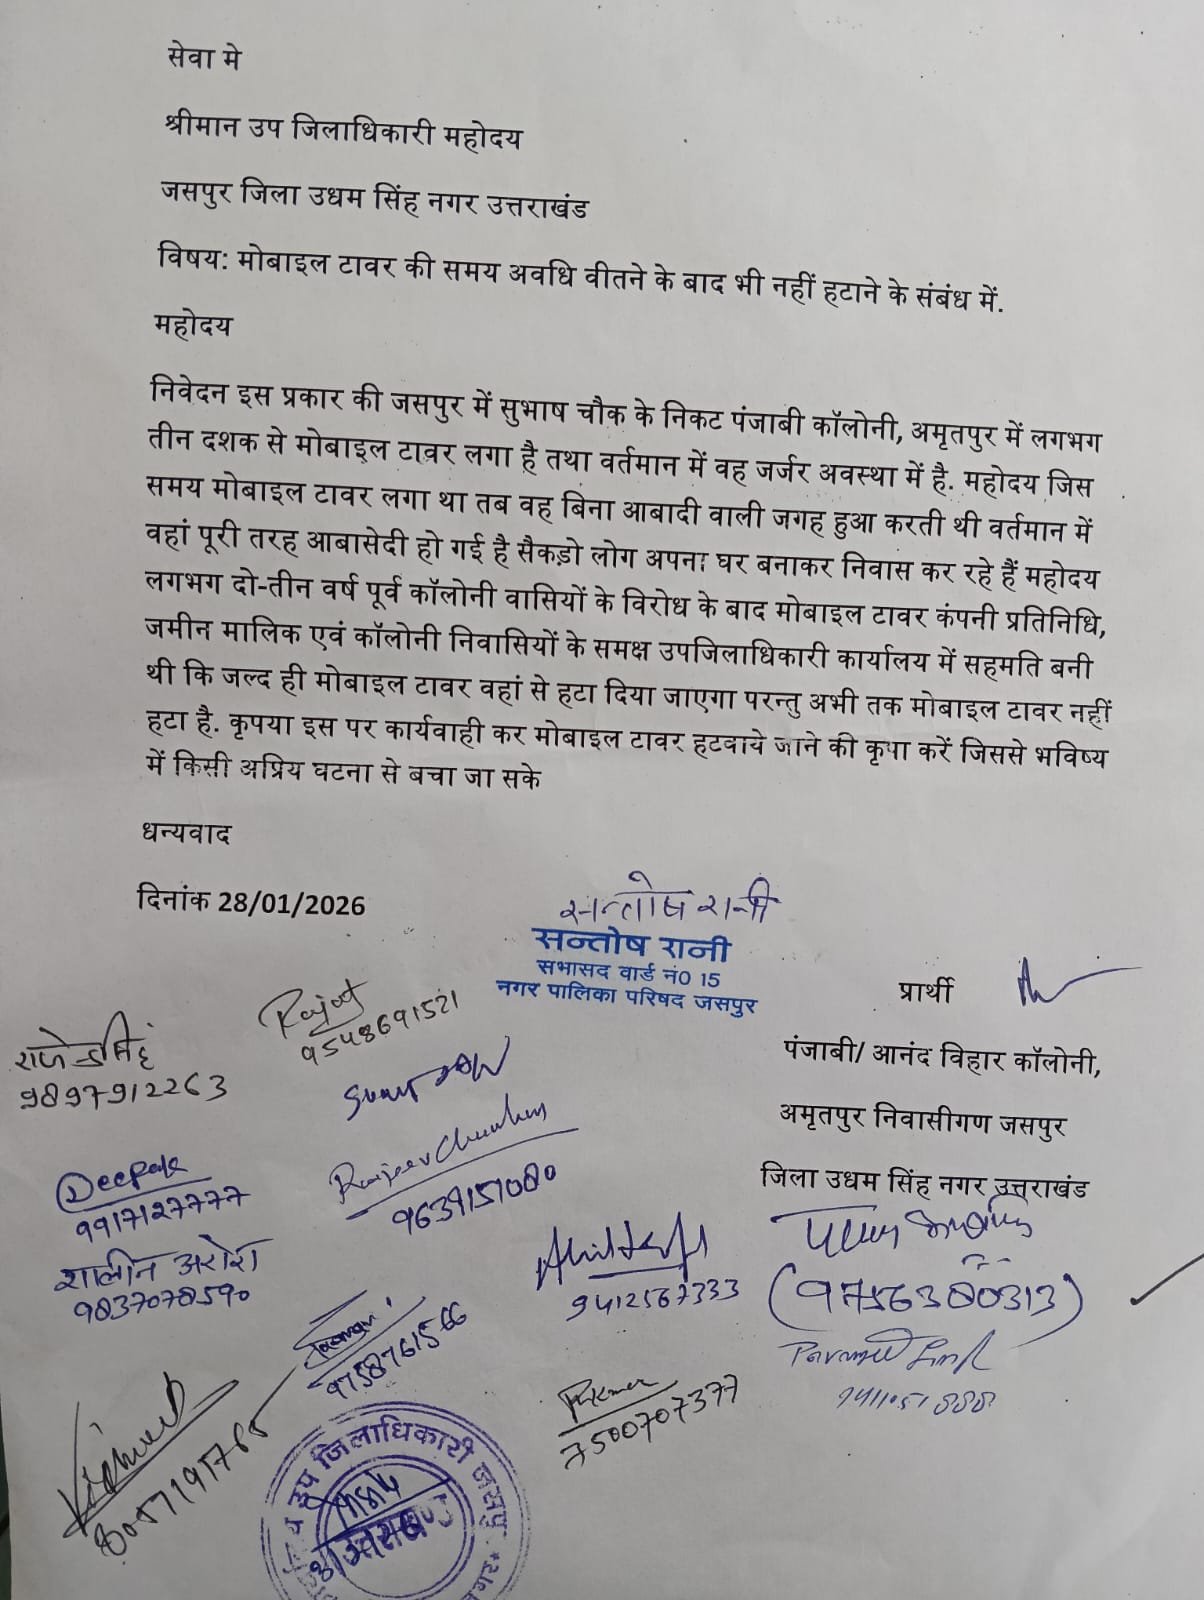 सेवा मे
श्रीमान उप जिलाधिकारी महोदय
जसपुर जिला उधम सिंह नगर उत्तराखंड
विषय: मोबाइल टावर की समय अवधि वीतने के बाद भी नहीं हटाने के संबंध में.
महोदय
निवेदन इस प्रकार की जसपुर में सुभाष चौक के निकट पंजाबी कॉलोनी, अमृतपुर में लगभग
तीन दशक से मोबाइल टावर लगा है तथा वर्तमान में वह जर्जर अवस्था में है. महोदय जिस
समय मोबाइल टावर लगा था तब वह बिना आबादी वाली जगह हुआ करती थी वर्तमान में
वहां पूरी तरह आबासेदी हो गई है सैकड़ो लोग अपना घर बनाकर निवास कर रहे हैं महोदय
लगभग दो-तीन वर्ष पूर्व कॉलोनी वासियों के विरोध के बाद मोबाइल टावर कंपनी प्रतिनिधि,
जमीन मालिक एवं कॉलोनी निवासियों के समक्ष उपजिलाधिकारी कार्यालय में सहमति बनी
थी कि जल्द ही मोबाइल टावर वहां से हटा दिया जाएगा परन्तु अभी तक मोबाइल टावर नहीं
हटा है. कृपया इस पर कार्यवाही कर मोबाइल टावर हटवाये जाने की कृपा करें जिससे भविष्य
में किसी अप्रिय घटना से बचा जा सके
धन्यवाद
दिनांक 28/01/2026
सन्तोष रानी
सन्तोष रानी
सभासद वार्ड नं0 15
नगर पालिका परिषद जसपुर
प्रार्थी
पंजाबी/ आनंद विहार कॉलोनी,
अमृतपुर निवासीगण जसपुर
जिला उधम सिंह नगर उत्तराखंड
9548691521
राजेन्द्र सिंह
9897912263
Deepak
9917127777
9639151080
शालीन अरोरा
9837078590
9412567333
(9756380313)
9758761566
7500707377
उप जिलाधिकारी जसपु